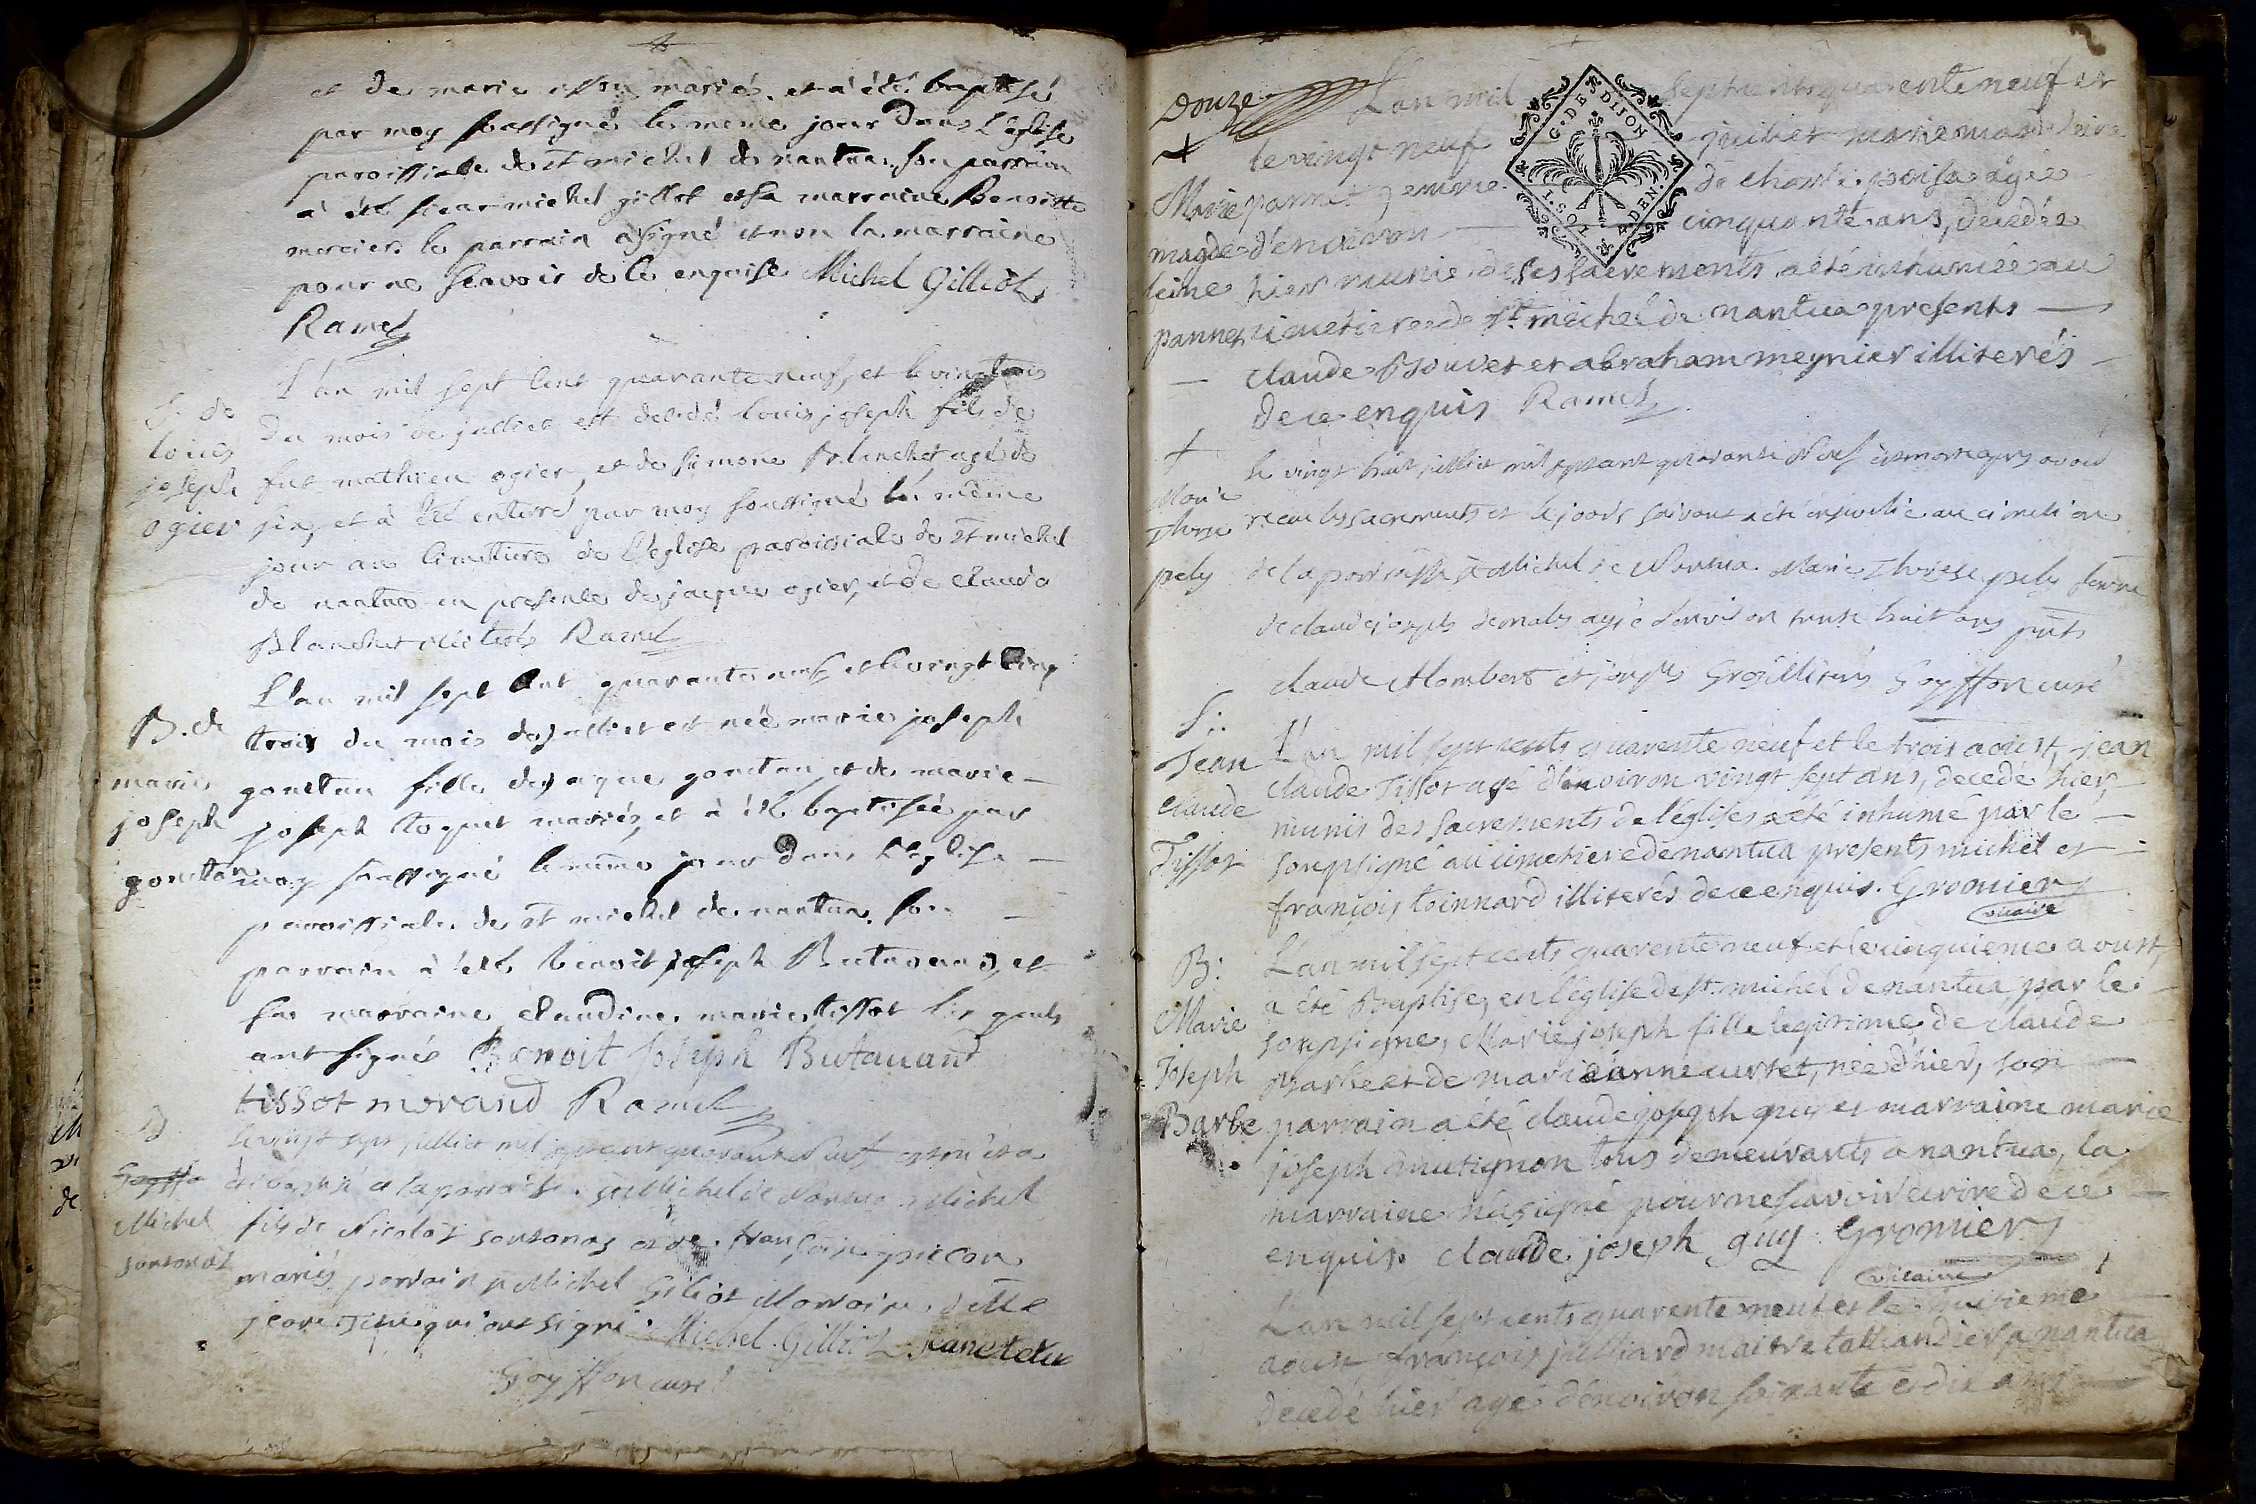 et de marie mariés. et a été baptisé
par moy soussigné le meme jour dans l'église
paroissiale de st michel de nantua, son parrain
a été sieur michel gillot et sa marraine Benoitte
mercier. le parrain a signé et non la marraine
pour ne sçavoir de ce enquise Michel Gilliot
Ramel
L'an mil sept cent quarante neuf, et le vingt trois
S. de
louis
joseph
ogier
du mois de juillet est decedé louis joseph fils de
fut mathieu ogier, et de simone Blanchet agé de
six, et à été enterré par moy soussigné le même
jour au cimetiere de l'eglise paroissiale de st michel
de nantua en presence de jacques ogier, et de claude
Blanchet illiterés Ramel
L'an mil sept cent quarante neuf, et le vingt cinq
B. de
marie
joseph
gouctan
du mois de juillet est née marie joseph
gouctan fille de jaques gouctan, et de marie
joseph toquet mariés, et à été baptisée par
moy soussigné le même jour dans l'eglise
paroissiale de st michel de nantua. son
parrain à été benoit joseph Butavand, et
sa marraine claudine marie tissot les quels
ont signés Benoit Joseph Butavant
tissot morand Ramel
B
Goyffo
Michel
sonsonas
le vingt sept juillet mil sept cent quarante neuf est né et a
été baptisé a la paroisse st Michel de Nantua Michel
fils de Nicolas sonsonas et de françoise
mariés parrain sr Michel Giliot Marraine dlle
jeane qui ont signé. Michel Gilliot
Goyffon curé
Douze
L'an mil sept cents quarente neuf et
+
Marie
magde
leine
pannet
le vingt neuf juillet marie madeleine
pannet femme de charle age
d'environ cinquante ans, decedée
hier munie de ses sacrements a été inhumée au
cimetiere de st michel de nantua presents
claude et abraham meynier illiterés
de ce enquis Ramel
+
Marie
Therese
pely
le vingt huit juillet mil sept cent quarante Neuf est morte apres avoir
recu les sacrements et le jour suivant a été ensevelie au cimetiere
de la paroisse st Michel de Nantua Marie Therese pely femme
de claude joseph agée d'environ trente huit ans pnts
claude Mombert et joseph Gros illiterés Goyffon curé
S:
Jean
claude
Tissot
L'an mil sept cents quarente neuf et le trois aoust, jean
claude Tissot agé d'environ vingt sept ans, decedé hier,
munis des sacrements de l'église, a été inhumé par le
soupsigné au cimetiere de nantua presents michel et
françois toinnard illiterés de ce enquis. Gromier
vicaire
B:
Marie
Joseph
Barbe
L'an mil sept cents quarente neuf et le cinquieme aoust,
a été Baptisé, en l'église de st. michel de nantua, par le
soupsigne, Marie joseph fille legitime de claude
Barbe et de marie anne curtet, née d'hier, son
parrain a été claude joseph guy et marraine marie
joseph mutignon tous demeurants a nantua, la
marraine n'a signé pour ne scavoir ecrire de ce
enquis claude joseph guy Gromier
vicaire
L'an mil sept cents quarente neuf et le huitieme
aoust, françois julliard maitre taillandier a nantua
decedé hier agé d'environ soixante et dix ans